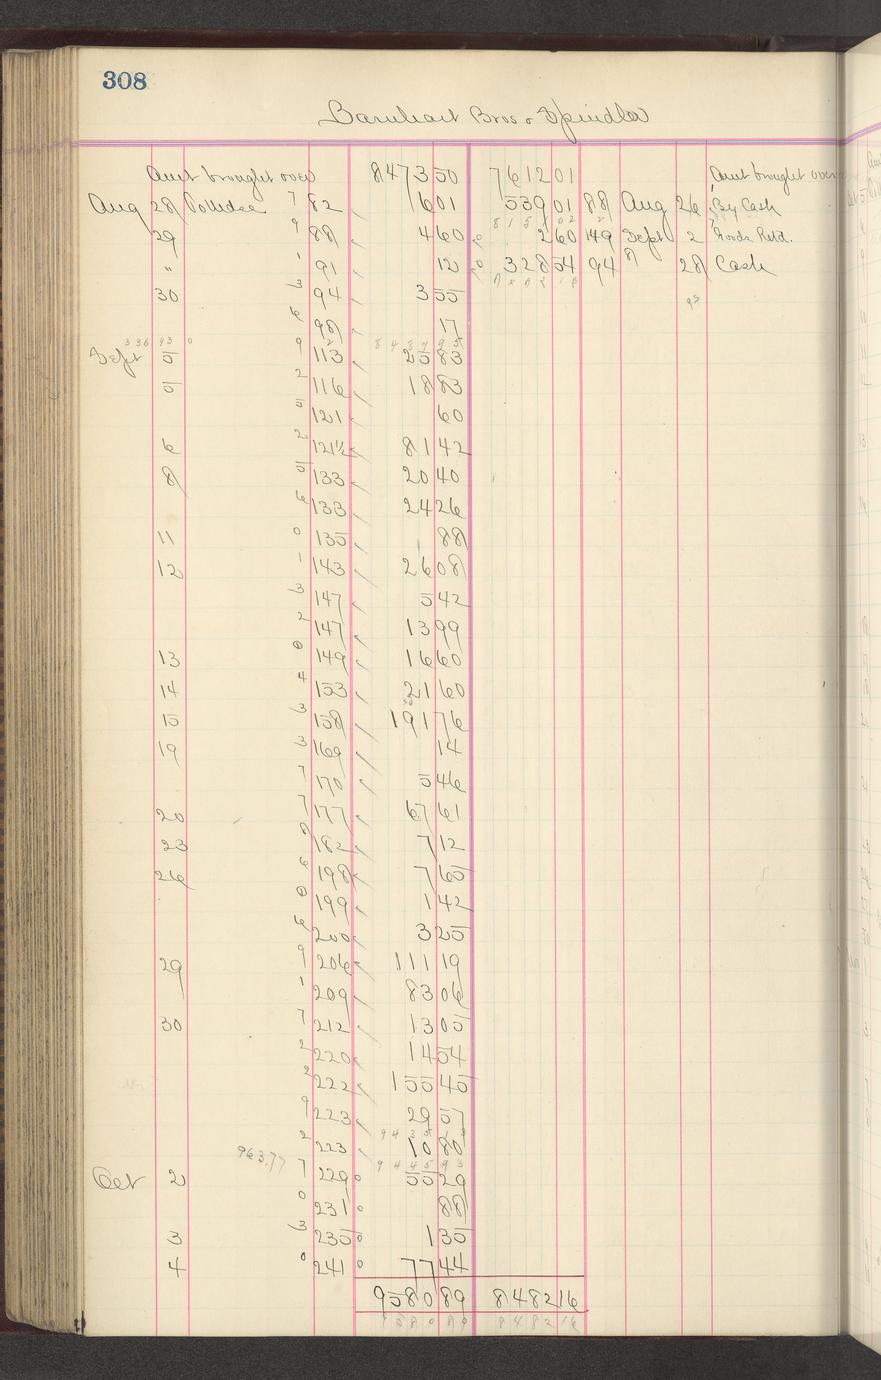 308
Barnhart Bros & Spindler
Amt brought over 8473 50 7612 01 Amt brought over
Aug 28 7 82 6 01 539 01 88 Aug 26 By Cash
8151 02
29 9 88 4 60 2 60 149 Sept 2 Goods Retd.
" 1 91 12 328 54 94 28 Cash
30 3 94 3 55
6 98 17
336 93 0 8487 95
Sept 5 9 113 25 83
5 2 116 18 83
5 121 60
6 2 121½ 81 42
8 5 133 20 40
6 133 24 26
11 0 135 88
12 1 143 26 08
3 147 5 42
2 147 13 99
13 0 149 16 60
14 4 153 21 60
15 3 158 191 76
19 3 169 14
7 170 5 46
20 7 177 67 61
23 8 182 7 12
26 6 198 7 65
0 199 1 42
6 200 3 25
29 9 206 111 19
1 209 83 06
30 7 212 13 05
2 220 14 54
2 222 155 45
9 223 29 57
2 223 10 80
963.77 9445 93
Oct 2 7 229 55 29
0 231 88
3 3 235 1 35
4 0 241 77 44
9580 89 8482 16
9580 89 8482 16